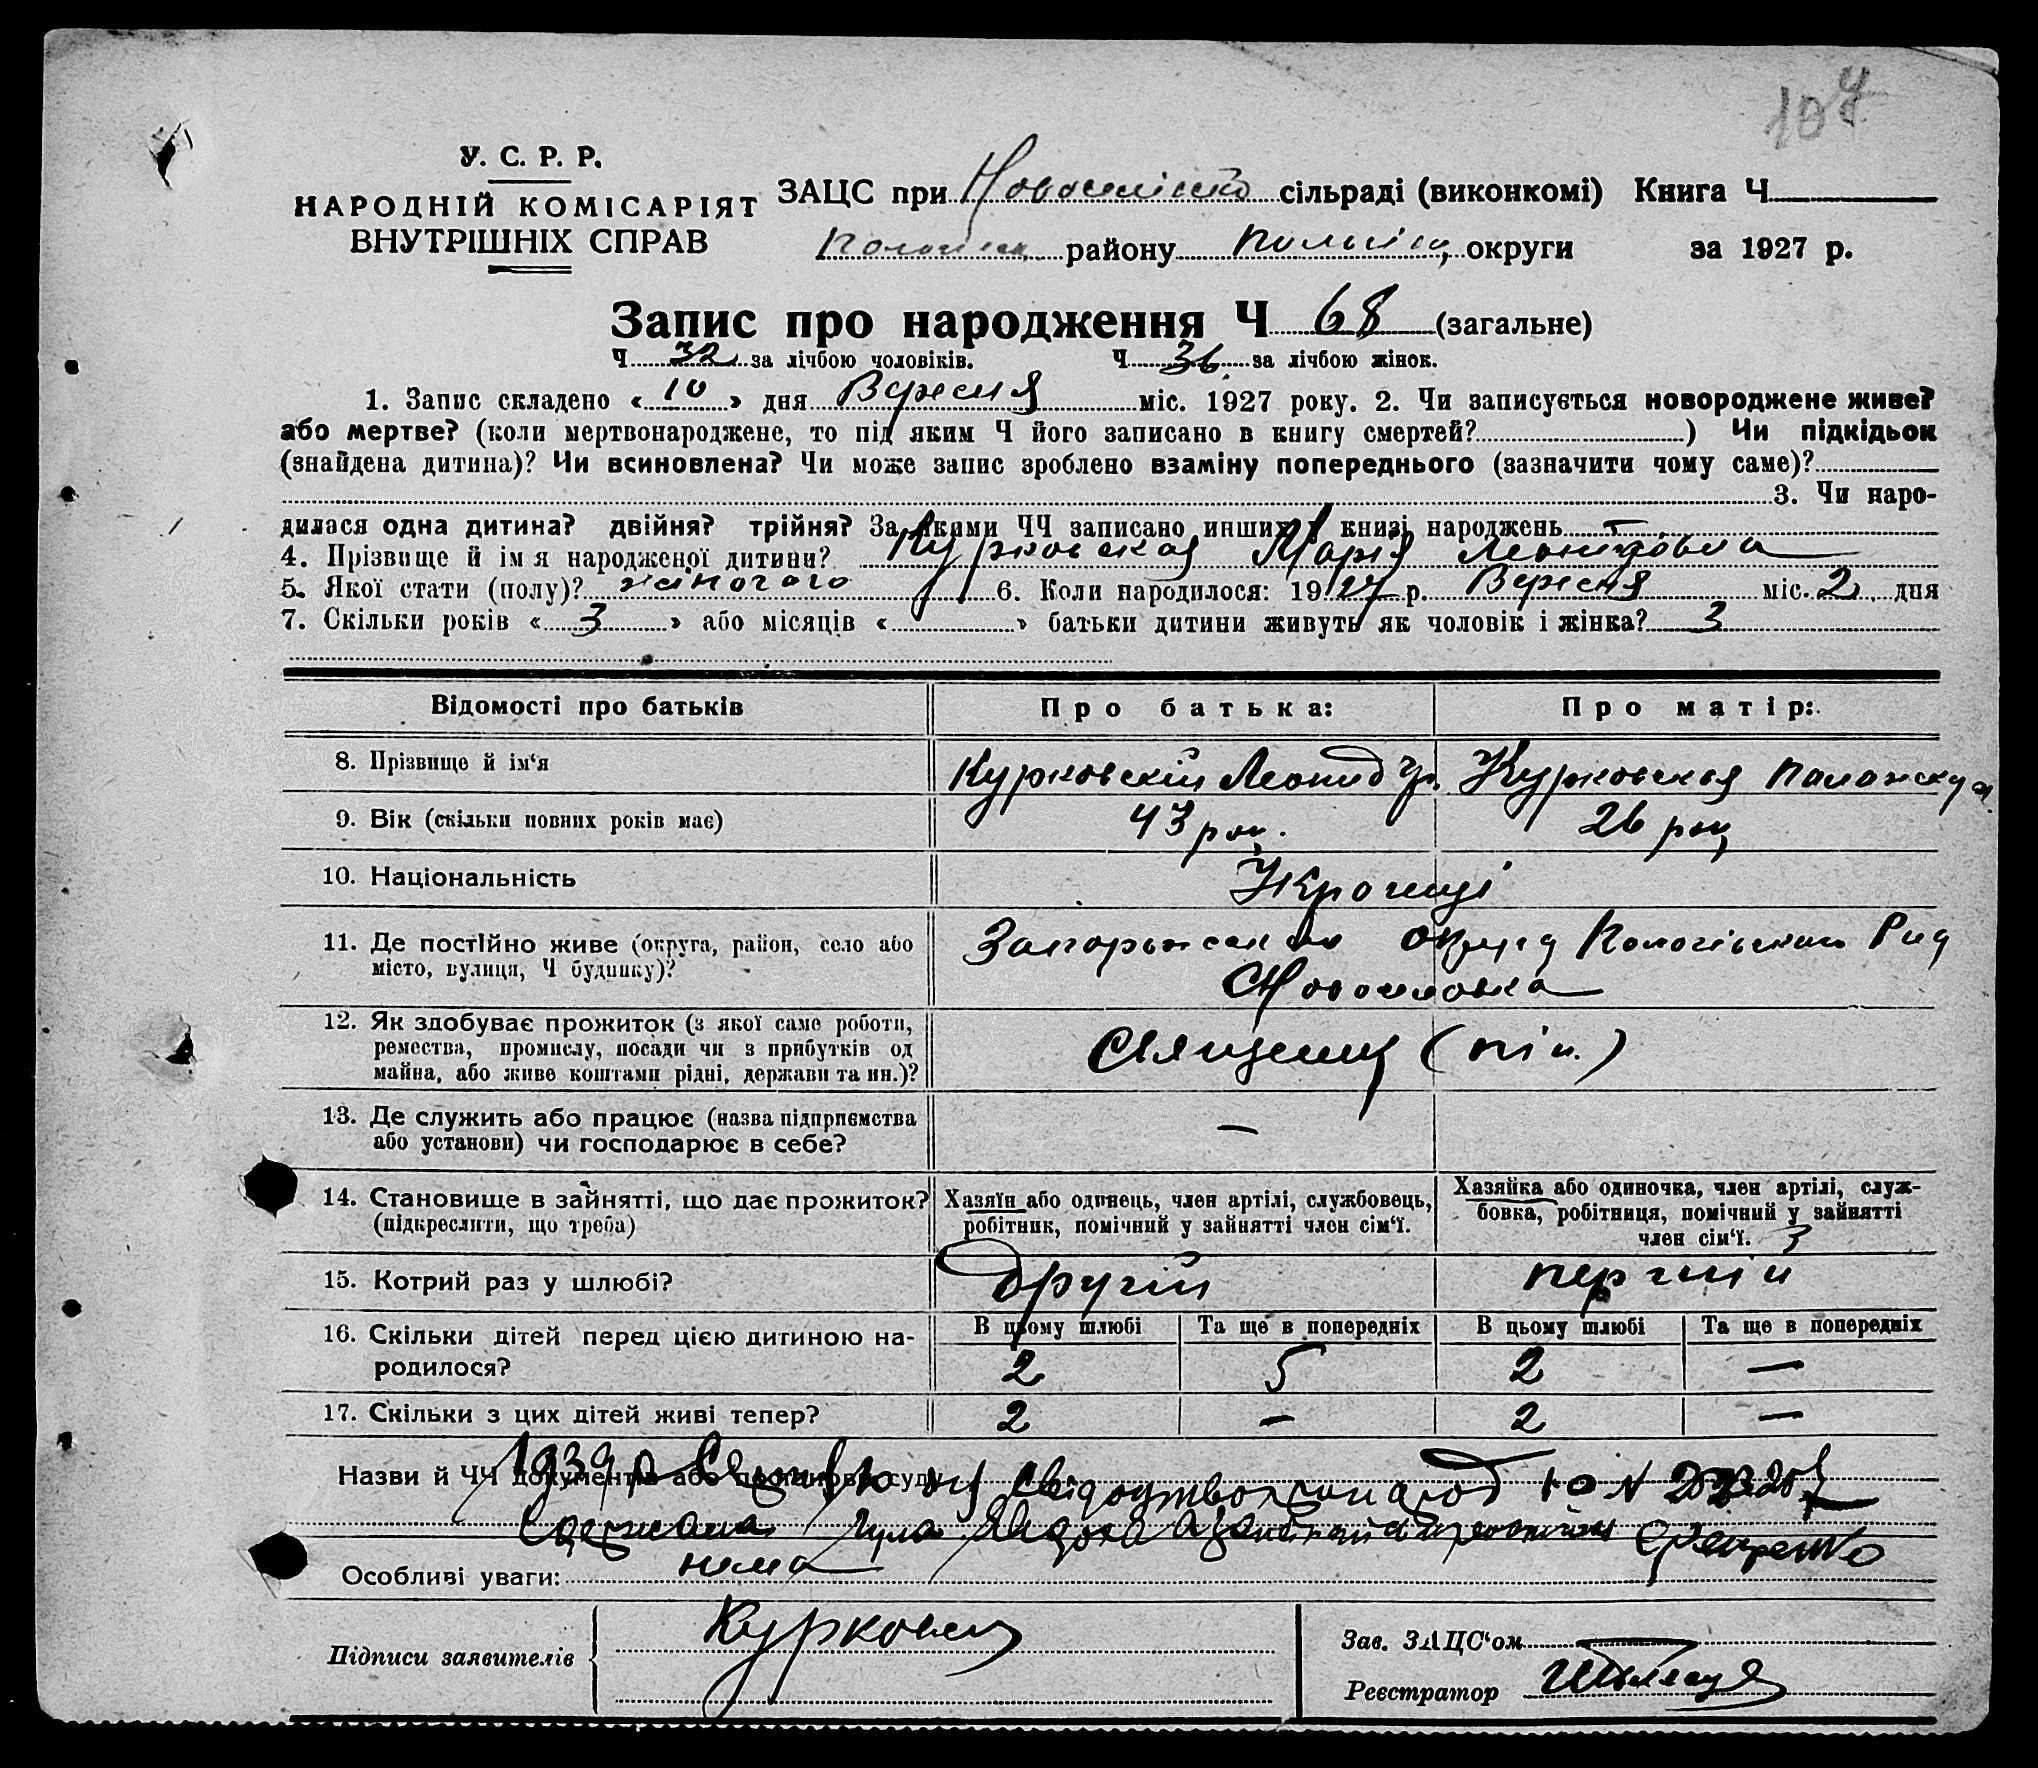 107
У. С. Р. Р.
НАРОДНІЙ КОМІСАРІЯТ
ВНУТРІШНІХ СПРАВ
ЗАЦС при сільраді (виконкомі) Книга Ч
району округи за 1927 р.
Запис про народження Ч 68 (загальне)
Ч 32 за лічбою чоловіків. Ч 36 за лічбою жінок.
1. Запис складено « 10 » дня Вересня міс. 1927 року. 2. Чи записується новороджене живе?
або мертве? (коли мертвонароджене, то під яким Ч його записано в книгу смертей? ) Чи підкідьок
(знайдена дитина)? Чи всиновлена? Чи може запис зроблено взаміну попереднього (зазначити чому саме)?
3. Чи наро-
дилася одна дитина? двійня? трійня? За якими ЧЧ записано инших у книзі народжень —
4. Прізвище й ім'я народженої дитини? Курковская Марія Леонидовна
5. Якої стати (полу)? жіночого 6. Коли народилося: 1927 р. Вересня міс. 2 дня
7. Скільки років « 3 » або місяців « » батьки дитини живуть як чоловік і жінка? 3
Відомості про батьків Про батька: Про матір:
8. Прізвище й ім'я Курковский Леонид Курковская
9. Вік (скільки повних років має) 43 рок. 26 рок
10. Національність Украінці
11. Де постійно живе (округа, район, село або
місто, вулиця, Ч будинку)?
12. Як здобуває прожиток (з якої саме роботи,
ремества, промислу, посади чи з прибутків од
майна, або живе коштами рідні, держави та ин.)?
Священик (піп.)
13. Де служить або працює (назва підприємства
або установи) чи господарює в себе? —
14. Становище в зайнятті, що дає прожиток?
(підкреслити, що треба)
Хазяїн або одинець, член артілі, службовець,
робітник, помічний у зайнятті член сім'ї.
Хазяйка або одиночка, член артілі, служ-
бовка, робітниця, помічний у зайнятті
член сім'ї. 3
15. Котрий раз у шлюбі? другий
16. Скільки дітей перед цією дитиною на-
родилося?
В цьому шлюбі Та ще в попередніх В цьому шлюбі Та ще в попередніх
2 5 2 —
17. Скільки з цих дітей живі тепер? 2 — 2 —
Назви й ЧЧ документів або постанови суду 1939 р.
Особливі уваги: нема
Підписи заявителів
Зав. ЗАЦС'ом
Реєстратор